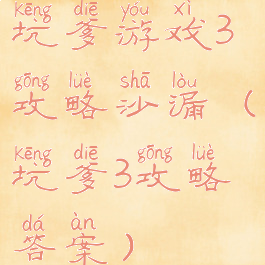 kēng diē yóu xì
坑爹游戏3
gōng lüè shā lòu
攻略沙漏（
kēng diē gōng lüè
坑爹3攻略
dá àn
答案）